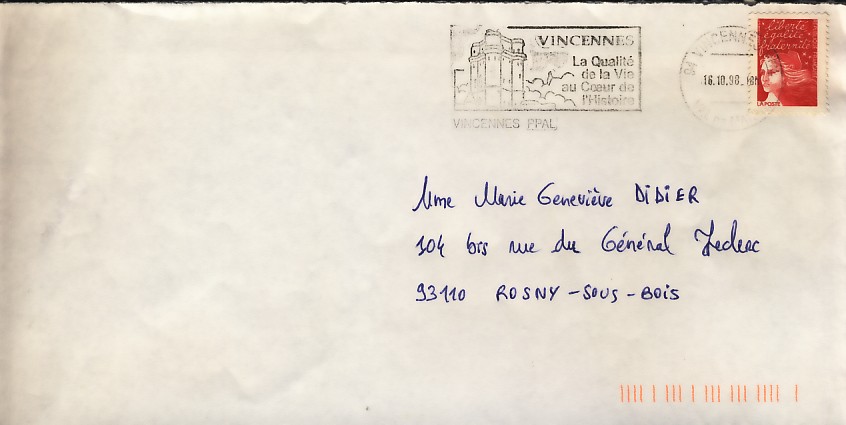 VINCENNES
La Qualité
de la Vie
au Cœur de
l'Histoire
VINCENNES PPAL
94 VINCENNES
16.10.98
Liberté
égalité
fraternité
LA POSTE
Mme Marie Geneviève DIDIER
104 bis rue du Général Leclerc
93110 ROSNY-SOUS-BOIS